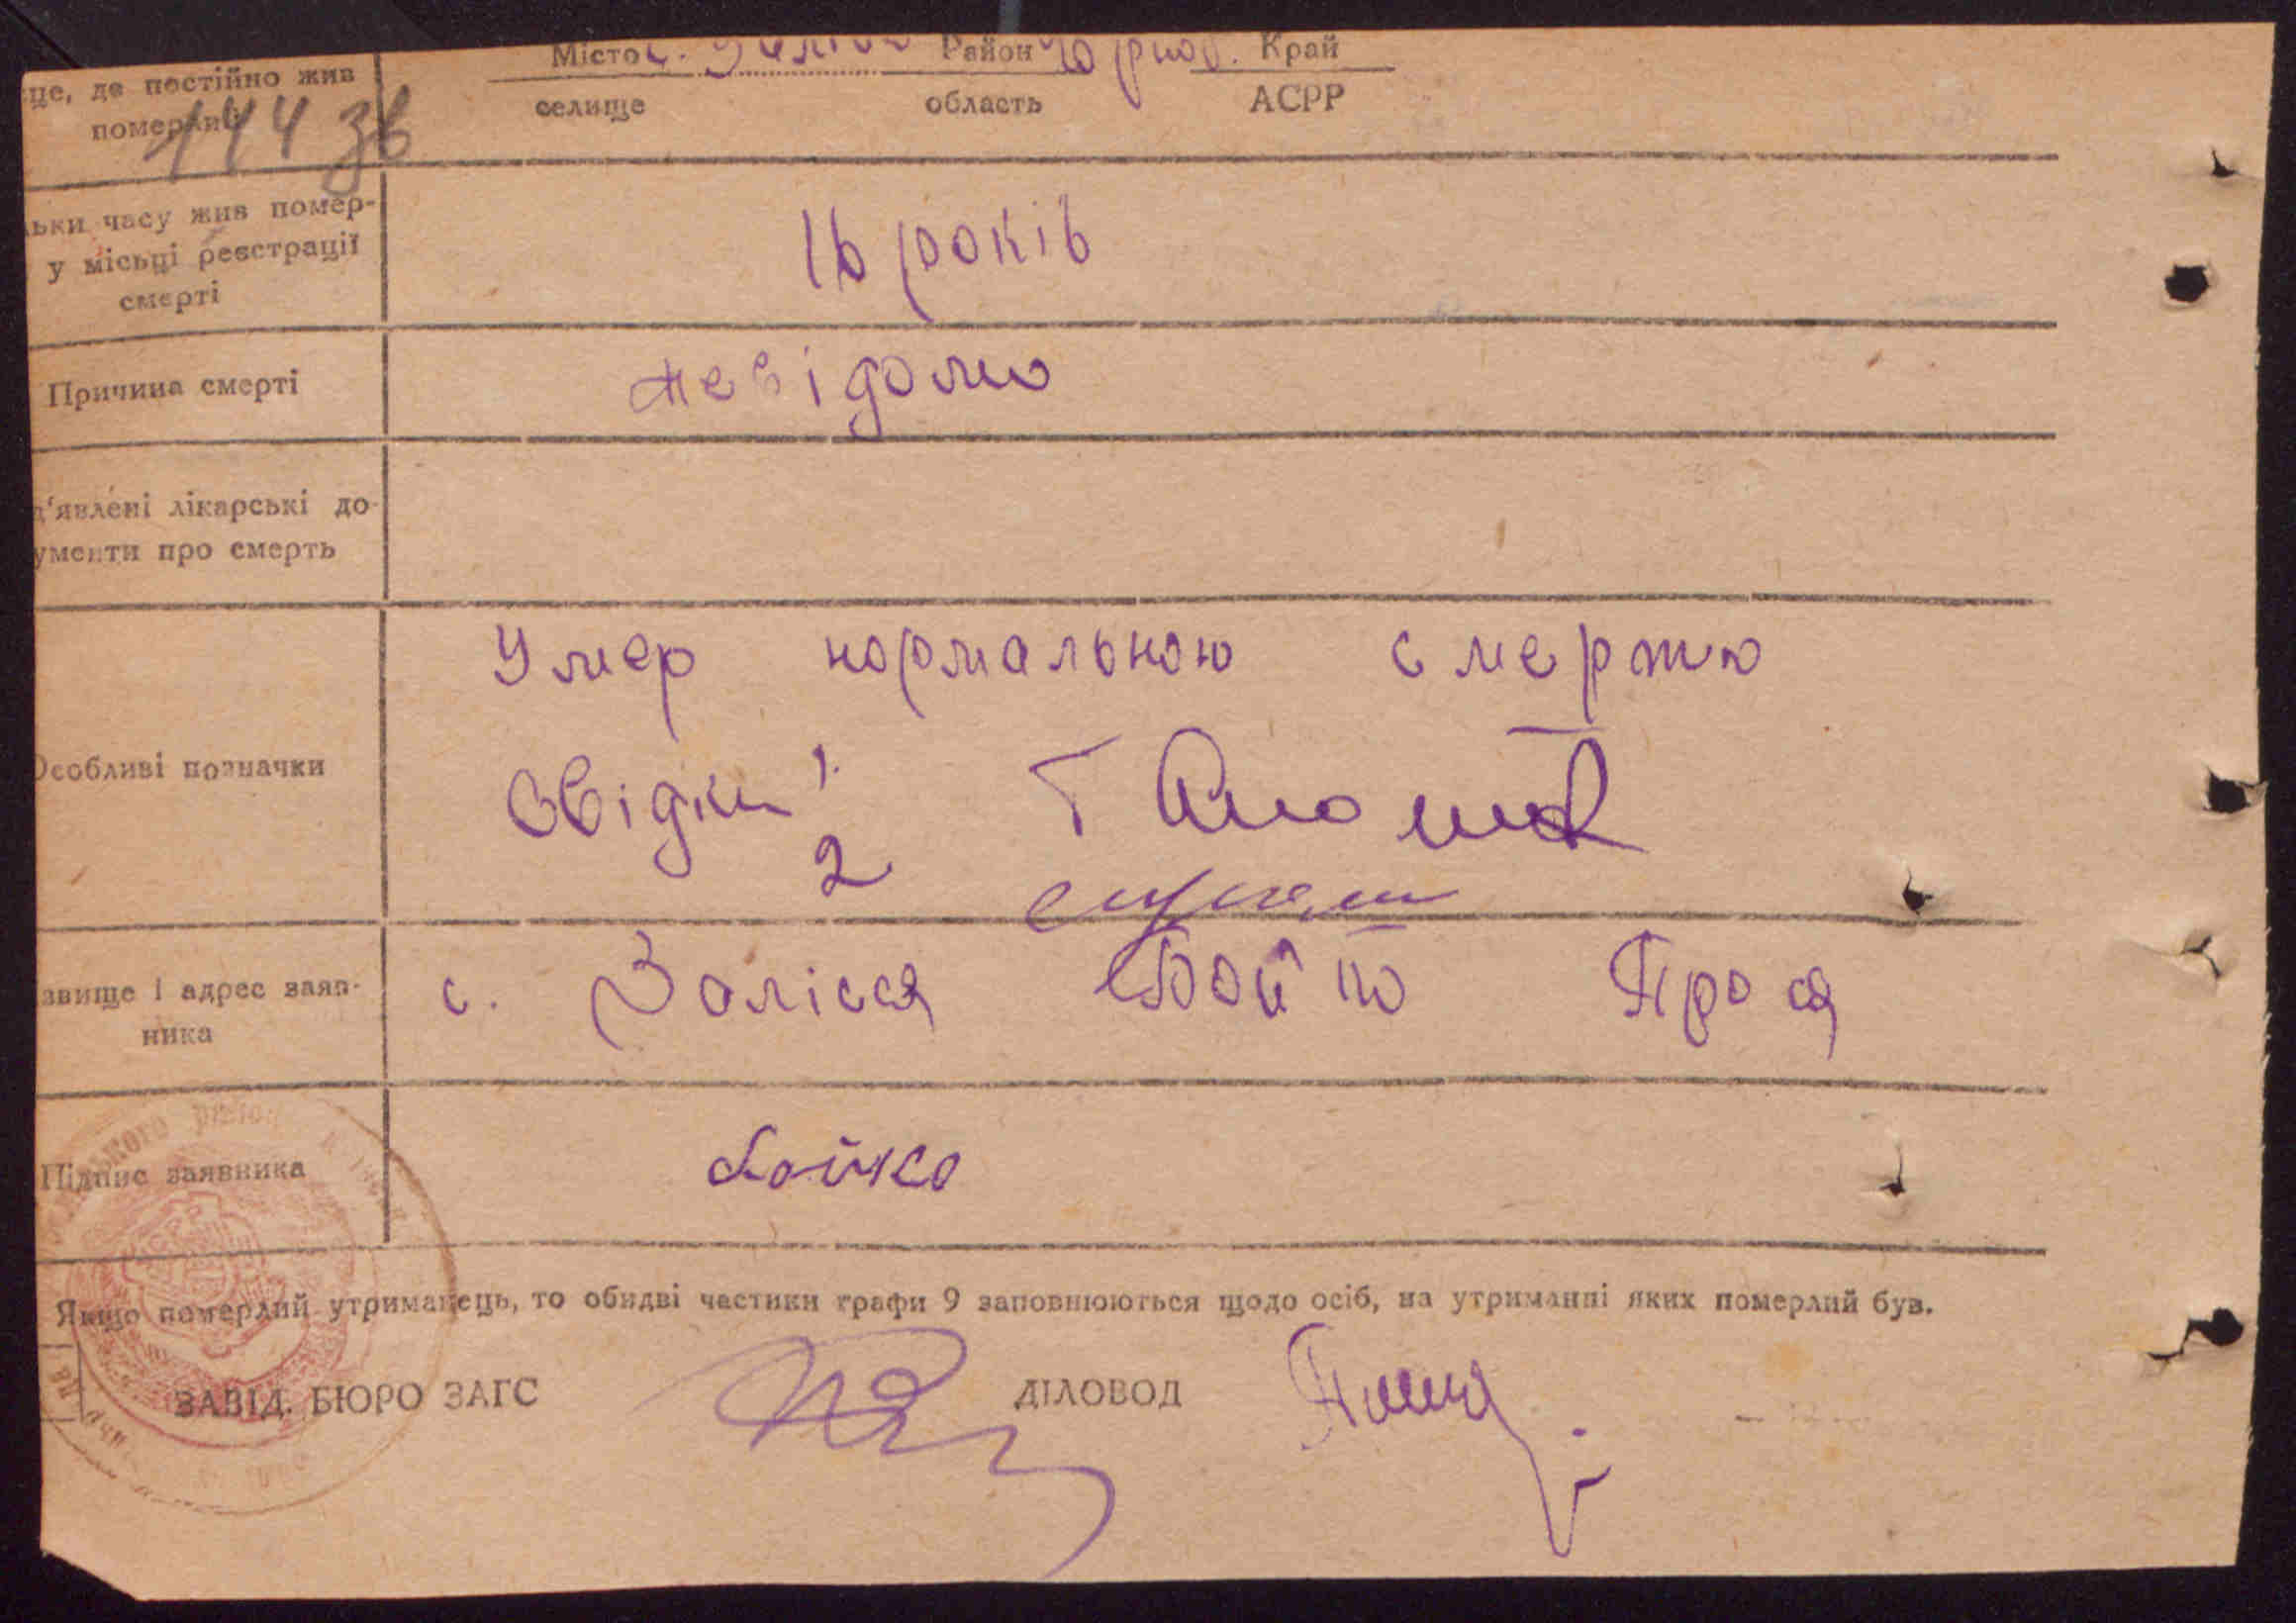 Місто с. Район Чорноб. Край
це, де постійно жив
померлий
селище область АСРР
144 зв
льки часу жив помер-
у місьці реєстрації
смерті
16 років
Причина смерті
невідомо
д'явлені лікарські до-
ументи про смерть
Умер нормальною смертю
Особливі позначки
Свідки 1.
2
звище і адрес заяв-
ника
с. Залісся Бойко Прося
Підпис заявника
бойко
Якщо померлий утриманець, то обидві частини графи 9 заповнюються щодо осіб, на утриманні яких померлий був.
ЗАВІД. БЮРО ЗАГС ДІЛОВОД